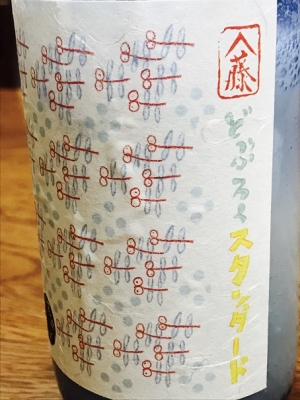 藤
どぶろくスタンダード